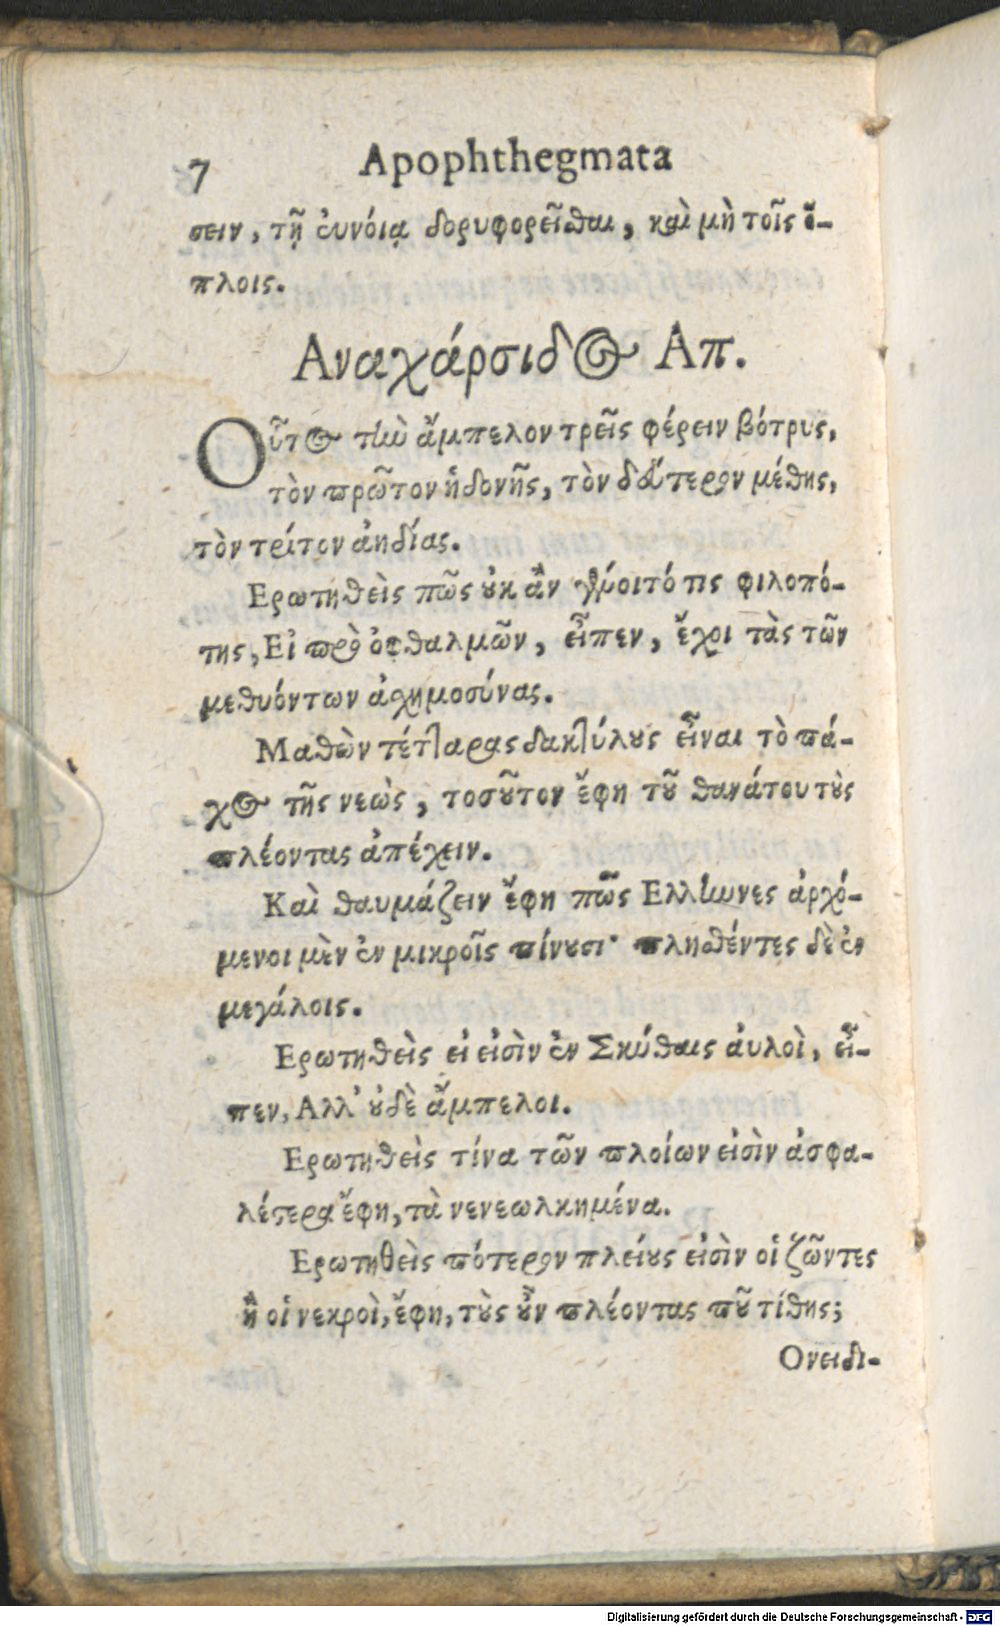 7 Apophthegmata
σειν, τῇ ἐυνόιᾳ δορυφορεῖσθαι, καὶ μὴ τοῖς ὅ-
πλοις.
Αναχάρσιδος Απ.
Οὗτος τὴν ἄμπελον τρεῖς φέρειν βότρυς,
τὸν πρῶτον ἡδονῆς, τὸν δεύτερον μέθης,
τὸν τρίτον ἀηδίας.
Ερωτηθεὶς πῶς ȣκ ἂν γένοιτό τις φιλοπό-
της, Εἰ πρὸ ὀφθαλμῶν, εἶπεν, ἔχοι τὰς τῶν
μεθυόντων ἀσχημοσύνας.
Μαθὼν τέτταρας δακτύλȣς εἶναι τὸ πά-
χος τῆς νεὼς, τοσȣ͂τον ἔφη τȣ͂ θανάτου τȣ̀ς
πλέοντας ἀπέχειν.
Καὶ θαυμάζειν ἔφη πῶς Ελληνες ἀρχό-
μενοι μὲν ἐν μικροῖς πίνȣσι· πληθέντες δὲ ἐν
μεγάλοις.
Ερωτηθεὶς εἰ εἰσὶν ἐν Σκύθαις ἀυλοὶ, εἶ-
πεν, Αλλ' ȣ̓δὲ ἄμπελοι.
Ερωτηθεὶς τίνα τῶν πλοίων εἰσὶν ἀσφα-
λέστερα ἔφη, τὰ νενεωλκημένα.
Ερωτηθεὶς πότερον πλείȣς εἰσὶν οἱ ζῶντες
ἢ οἱ νεκροὶ, ἔφη, τȣ̀ς ȣ̓͂ν πλέοντας πȣ͂ τίθης;
Ονειδι-
Digitalisierung gefördert durch die Deutsche Forschungsgemeinschaft - DFG